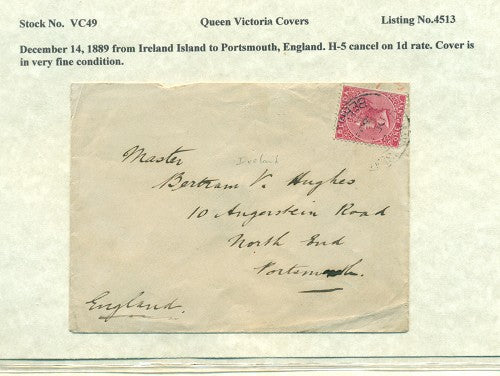 Stock No. VC49 Queen Victoria Covers Listing No.4513
December 14, 1889 from Ireland Island to Portsmouth, England. H-5 cancel on 1d rate. Cover is
in very fine condition.
ONE PENNY
Master
Bertram V. Hughes
10 Angerstein Road
North End
Portsmouth.
England.